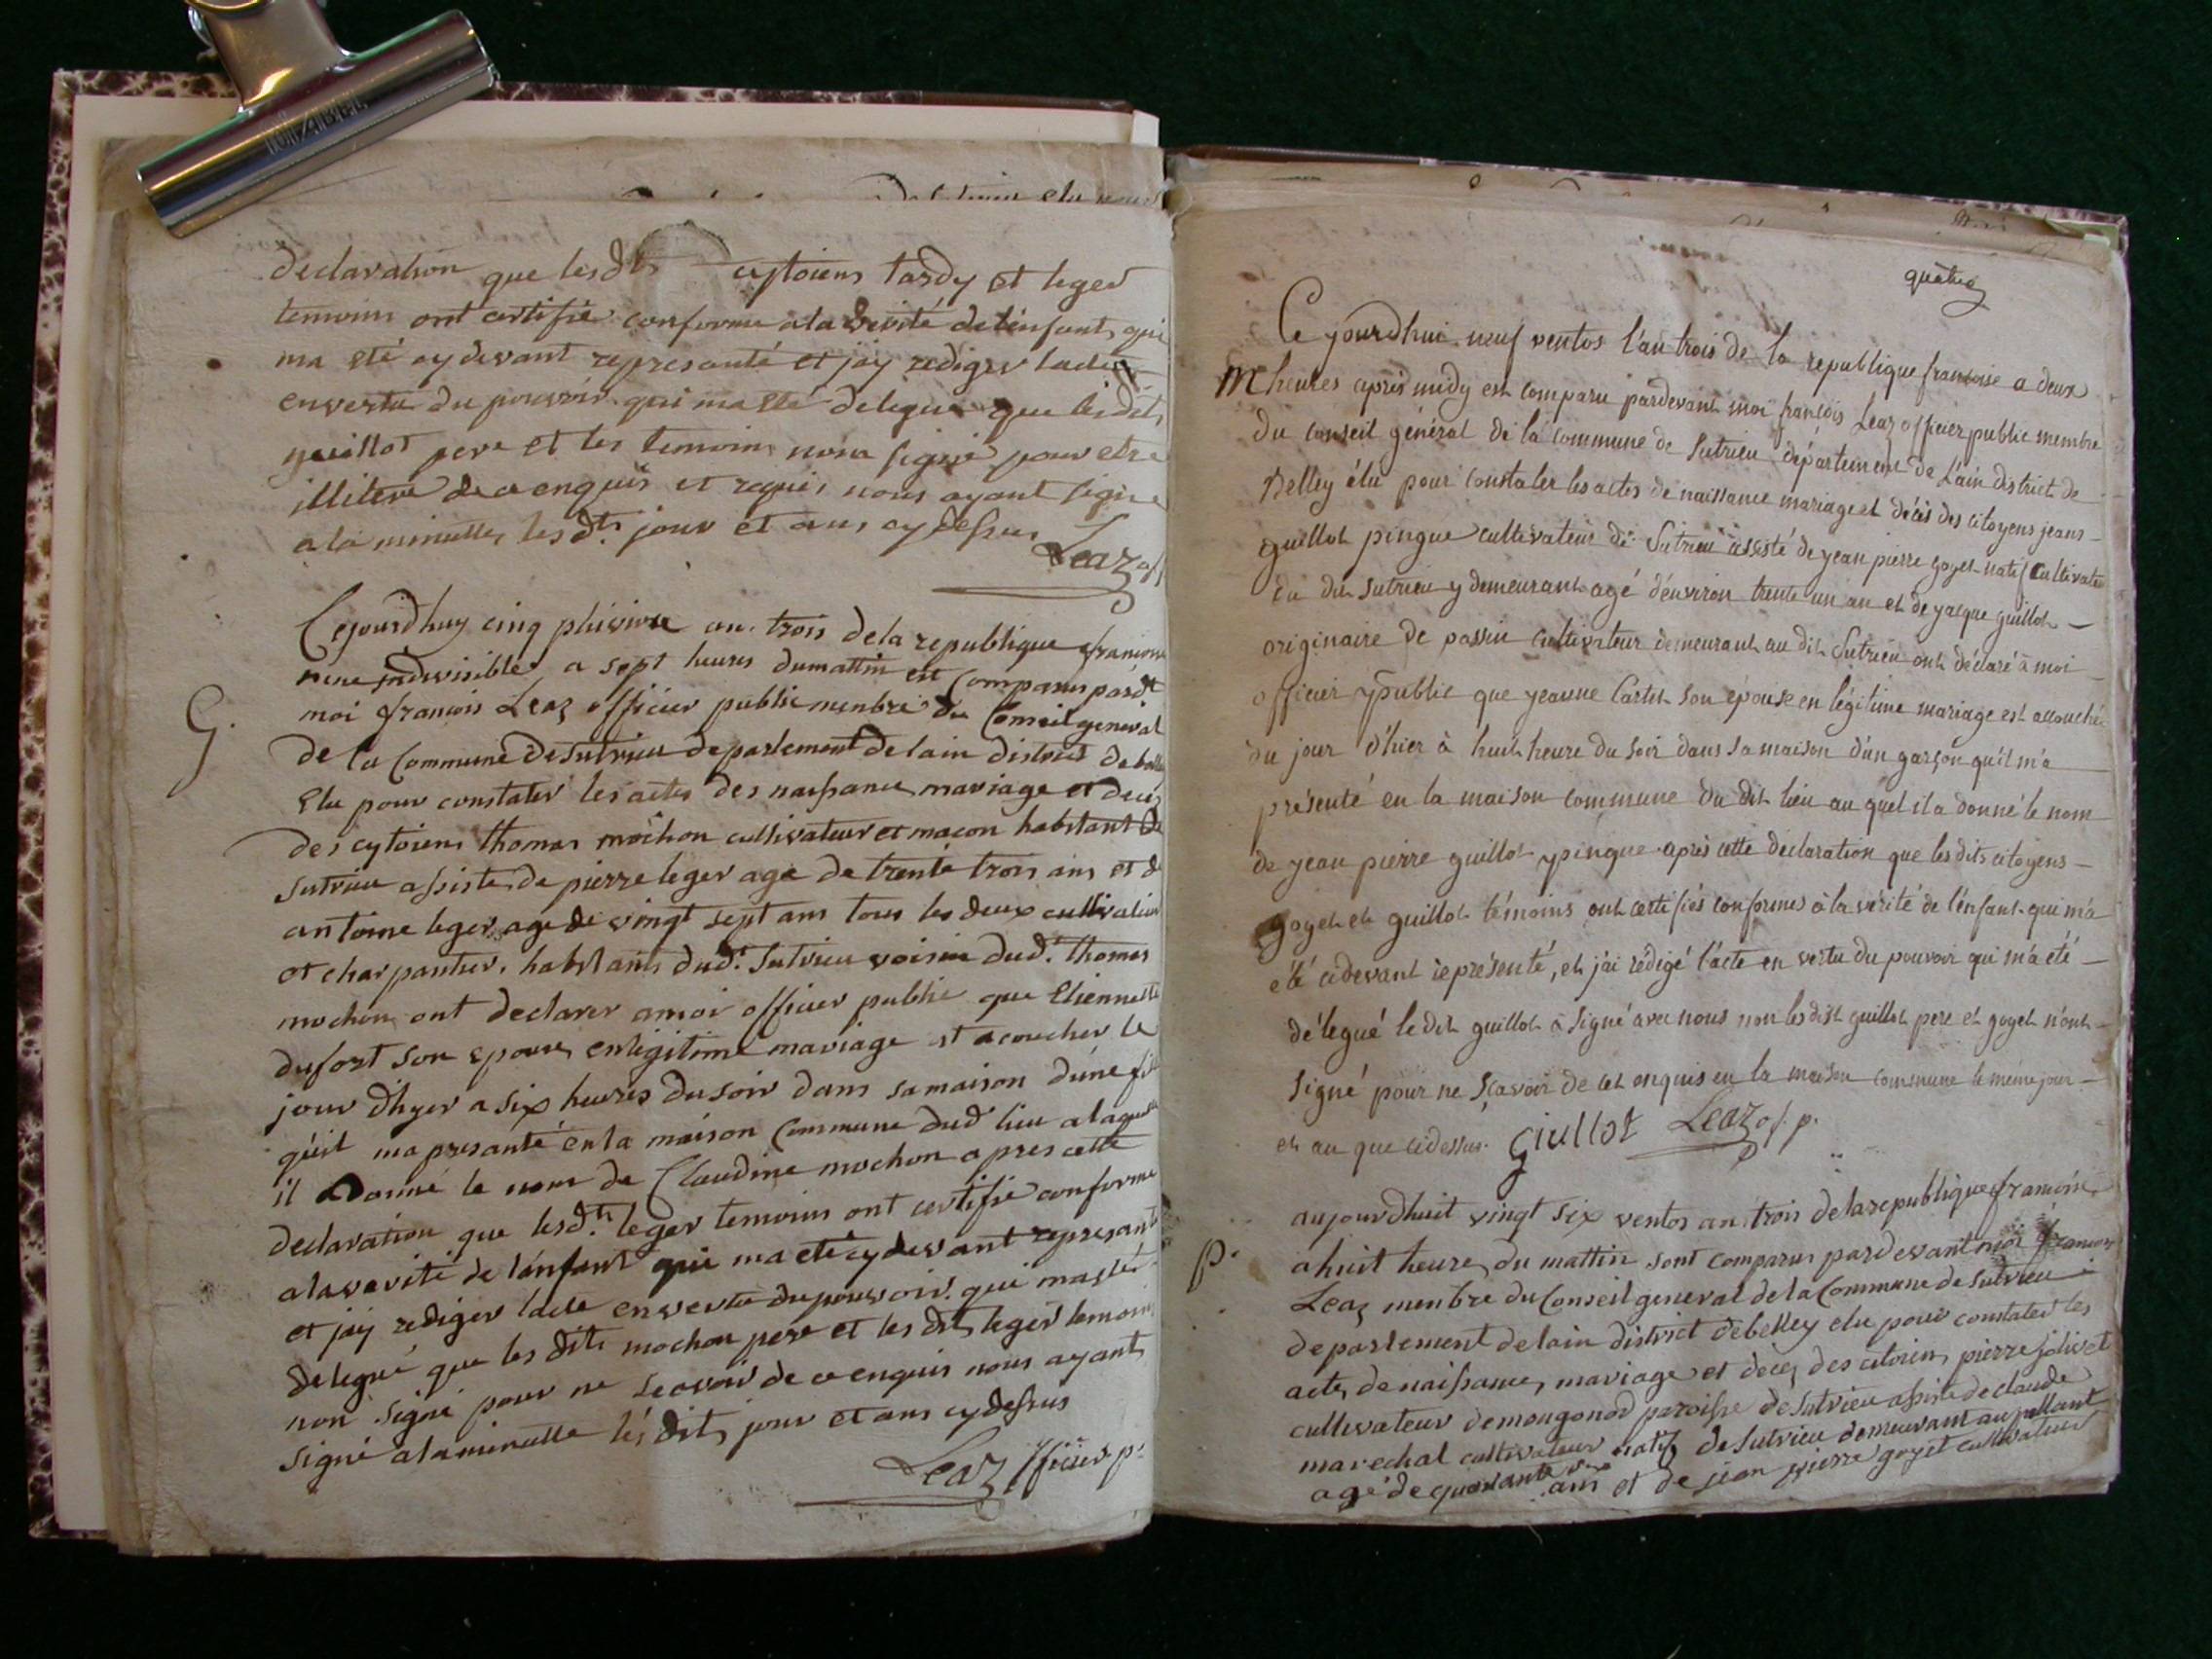 declaration que lesdts cytoiens tardy et leger
temoins ont certifié conforme a la verité de lenfant qui
ma eté cy devant represanté et jay rediger lacte
en vertu du pouvoir qui ma eté delegué que lesdits
guillot pere et les temoins nons signé pour etre
illiteré de ce enquis et requis nous ayant signé
a la minutte, les dts jour et ans cy dessus
Leaz off
G.
Cejourdhuy cinq pluviose an trois de la republique francoise
une indivisible a sept heures dumattin est comparus pardt
moi francois Leaz officier public menbre du Conseil general
de la Commune de Sutrieu departement de lain district de belle
Elu pour constater les actes des naissance, mariage et decés
des cytoiens thomas mochon cultivateur et macon habitant de
Sutrieu assiste de pierre leger age de trente trois ans et d
antoine leger age de vingt sept ans tous les deux cultivateur
et charpantier, habitants dudt Sutrieu voisin dudt thomas
mochon ont declarer a moi officier public que Etiennette
dufort son epouse en legitime mariage st acoucher le
jour dhyer a six heures du soir dans sa maison dune fi
quit ma presanté en la maison Commune dud lieu a laque
il Donné le nom de Claudine mochon apres cette
declaration que lesdts leger temoins ont certifié conforme
a la verité de lanfant qui ma eté cy devant represanté
et jay rediger lacte en vertu du pouvoir qui ma eté
delegué que les dits mochon pere et les dits leger temoins
non signé pour ne scavoir de ce enquis nous ayant
signé a la minutte lés dits jour et ans cy dessus
Leaz officier p.
quatre
Ce jourdhui neuf ventos l'an trois de la republique francoise a deux
heures après midy est comparu pardevant moi françois Leaz officier public membre
du conseil général de la commune de Sutrieu département de L'ain district de
Belley élu pour constater les actes de naissance mariage et décès des citoyens jeans
guillot pingue cultivateur de Sutrieu assisté de yean pierre goyet natif Cultivateu
du dit Sutrieu y demeurant agé d'environ trente un an et de yacque guillot
originaire de passin cultivateur demeurant au dit Sutrieu ont déclaré à moi
officier public que yeanne Cartet son épouse en légitime mariage est accouchée
du jour d'hier à huit heure du soir dans sa maison d'un garçon qu'il m'a
présenté en la maison commune du dit lieu au quel il a donné le nom
de yean pierre guillot pingue après cette déclaration que les dits citoyens
goyet et guillot témoins ont certifiés conformes à la vérité de l'enfant qui m'a
été cidevant représenté, et j'ai rédigé l'acte en vertu du pouvoir qui m'a été
délegué le dit guillot à signé avec nous non les dist guillot pere et goyet n'ont
signé pour ne sçavoir de cet enquis en la maison commune le même jour
et an que cidessus. Giullot Leaz of. p.
p.
aujourdhuit vingt six ventos an trois de la republique francoise
a huit heure du mattin sont comparus pardevant moi francois
Leaz menbre du Conseil general de la Commune de Sutrieu
departement de lain district de belley elu pour constater les
acte, de naissance, mariage et deces des citoiens pierre jolivet
cultivateur de mongonod paroisse de Sutrieu assiste de claude
marechal cultivateur natif de Sutrieu demeurant au pallant
agé de quarante ans et de jean pierre goyet cultivateur